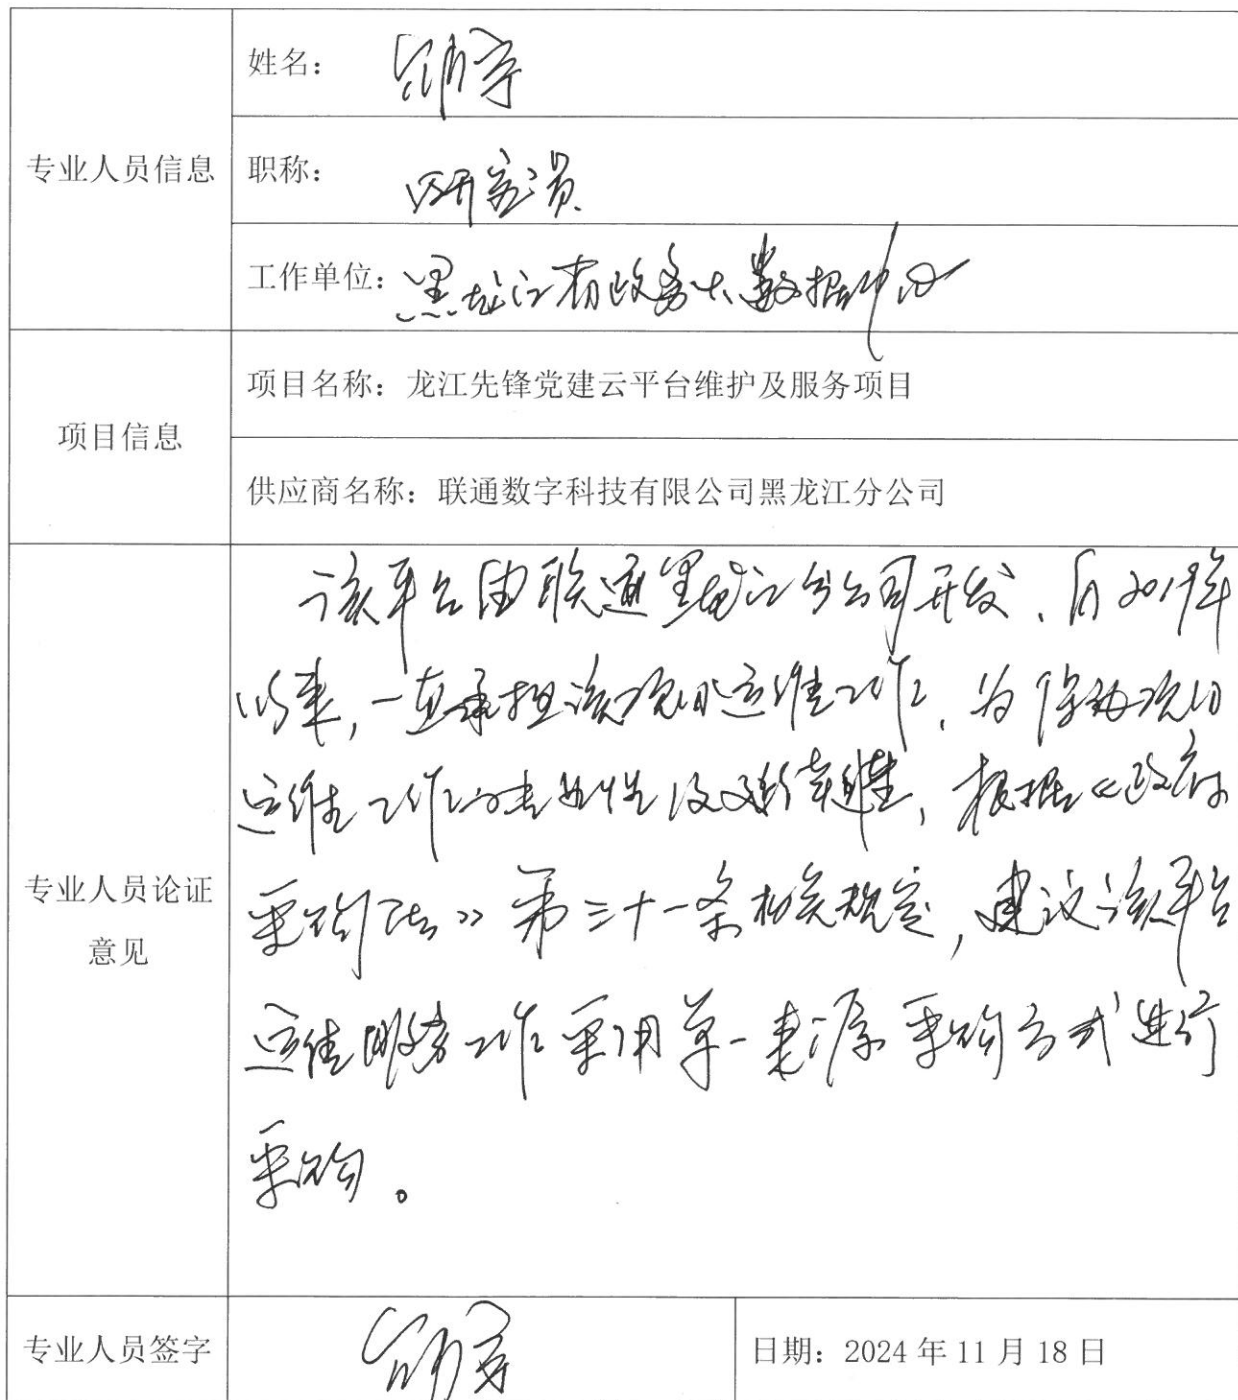 姓名：
专业人员信息
职称：研究员
工作单位：黑龙江省政务大数据中心
项目信息
项目名称：龙江先锋党建云平台维护及服务项目
供应商名称：联通数字科技有限公司黑龙江分公司
专业人员论证
意见
该平台由联通黑龙江分公司开发，自2019年
以来，一直承担该项目运维工作，为保证项目
运维工作的专业性及延续性，根据《政府
采购法》第三十一条相关规定，建议该平台
运维服务工作采用单一来源采购方式进行
采购。
专业人员签字
日期：2024年11月18日